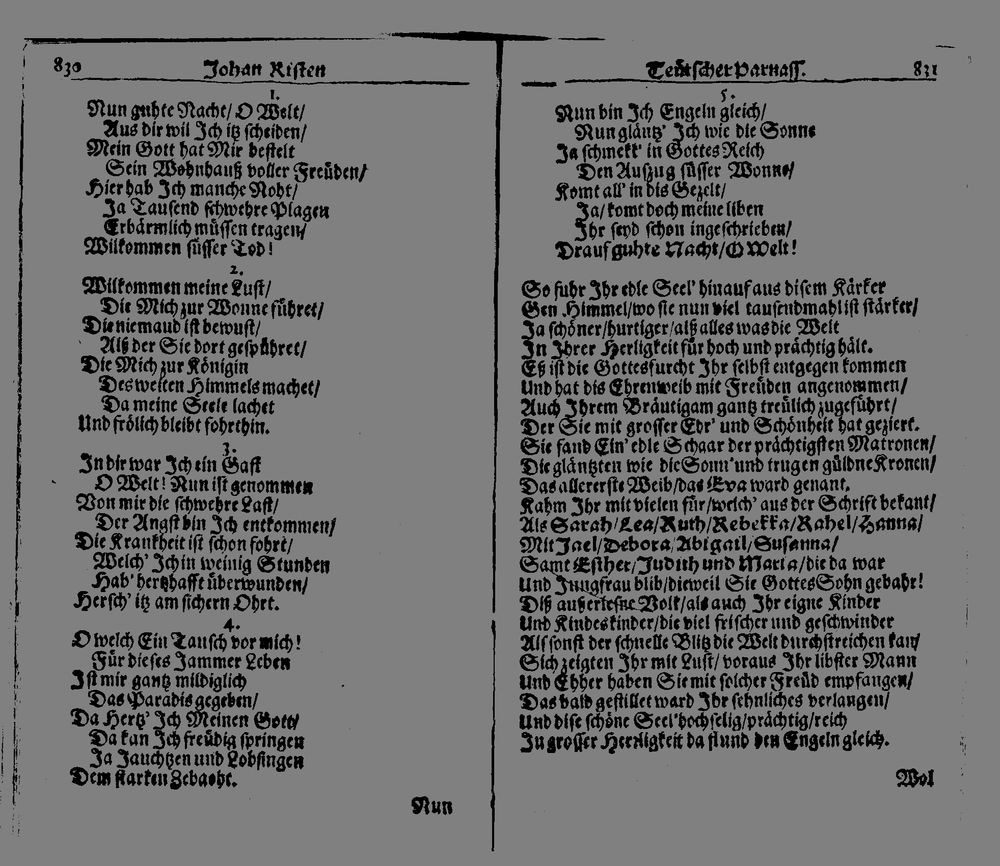 830 Johan Risten
1.
Nun guhte Nacht/ O Welt/
Aus dir wil Jch itz scheiden/
Mein Gott hat Mir bestelt
Sein Wohnhauß voller Freüden/
Hier hab Jch manche Noht/
Ja Tausend schwehre Plagen
Erbärmlich müssen tragen/
Wilkommen süsser Tod!
2.
Wilkommen meine Lust/
Die Mich zur Wonne führet/
Die niemand ist bewust/
Alß der Sie dort gespühret/
Die Mich zur Königin
Des weiten Himmels machet/
Da meine Seele lachet
Und frölich bleibt fohrthin.
3.
In dir war Jch ein Gast
O Welt! Nun ist genommen
Von mir die schwehre Last/
Der Angst bin Jch entkommen/
Die Krankheit ist schon fohrt/
Welch' Jch in weinig Stunden
Hab' hertzhafft überwunden/
Hersch' itz am sichern Ohrt.
4.
O welch Ein Tausch vor mich!
Für dieses Jammer Leben
Jst mir gantz mildiglich
Das Paradis gegeben/
Da Hertz' Jch Meinen Gott/
Da kan Jch freüdig springen
Ja Jauchtzen und Lobsingen
Dem starken Zebaoht.
Nun
Teütscher Parnass. 831
5.
Nun bin Jch Engeln gleich/
Nun gläntz' Jch wie die Sonne
Ja schmekk' in Gottes Reich
Den Auszug süsser Wonne/
Komt all' in dis Gezelt/
Ja/ komt doch meine liben
Jhr seyd schon ingeschrieben/
Drauf guhte Nacht/ O Welt!
So fuhr Jhr edle Seel' hinauf aus disem Kärker
Gen Himmel/ wo sie nun viel tausendmahl ist stärker/
Ja schöner/ hurtiger/ alß alles was die Welt
In Jhrer Herligkeit für hoch und prächtig hält.
Eß ist die Gottesfurcht Jhr selbst entgegen kommen
Und hat dis Ehrenweib mit Freüden angenommen/
Auch Jhrem Bräutigam gantz treülich zugeführt/
Der Sie mit grosser Ehr' und Schönheit hat geziert.
Sie fand Ein' edle Schaar der prächtigsten Matronen/
Die gläntzten wie die Sonn' und trugen güldne Kronen/
Das allererste Weib/ das Eva ward genant.
Kahm Jhr mit vielen für/ welch' aus der Schrift bekant/
Als Sarah/ Lea/ Ruth/ Rebekka/ Rahel/ Hanna/
Mit Jael/ Debora/ Abigail/ Susanna/
Samt Esther/ Judith und Maria/ die da war
Und Jungfrau blib/ dieweil Sie Gottes Sohn gebahr!
Diß außerlesne Volk/ als auch Jhr eigne Kinder
Und Kindeskinder/ die viel frischer und geschwinder
Als sonst der schnelle Blitz die Welt durchstreichen kan/
Sich zeigten Jhr mit Lust/ voraus Jhr libster Mann
Und Ehher haben Sie mit solcher Freüd empfangen/
Das bald gestillet ward Jhr sehnliches verlangen/
Und dise schöne Seel' hochselig/ prächtig/ reich
In grosser Herrligkeit da stund den Engeln gleich.
Wol